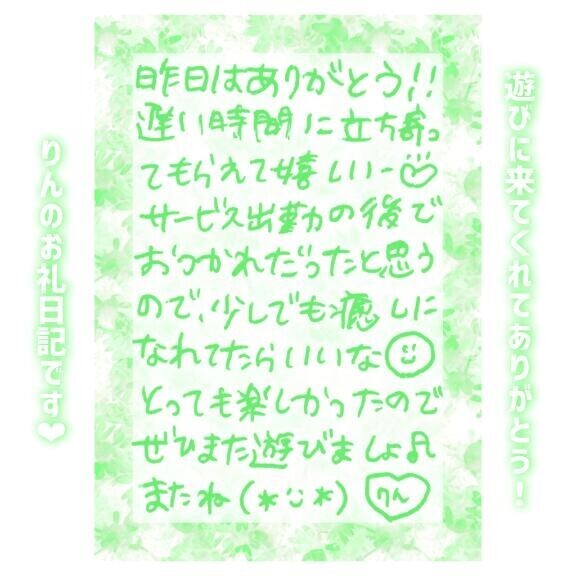 遊びに来てくれてありがとう!
昨日はありがとう!!
遅い時間に立ち寄っ
てもらえて嬉しいー♡
サービス出勤の後で
おつかれだったと思う
ので、少しでも癒しに
なれてたらいいな☺
とっても楽しかったので
ぜひまた遊びましょ♫
またね(*¨̮*)
りん
りんのお礼日記です❤